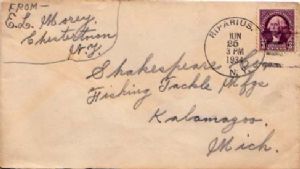 FROM-
E. L. Morey,
Chestertown
N.Y.
RIPARIUS,
JUN
25
3 PM
1934
N.Y.
Shakespeare
Fishing Tackle Mfgs
Kalamazoo
Mich.